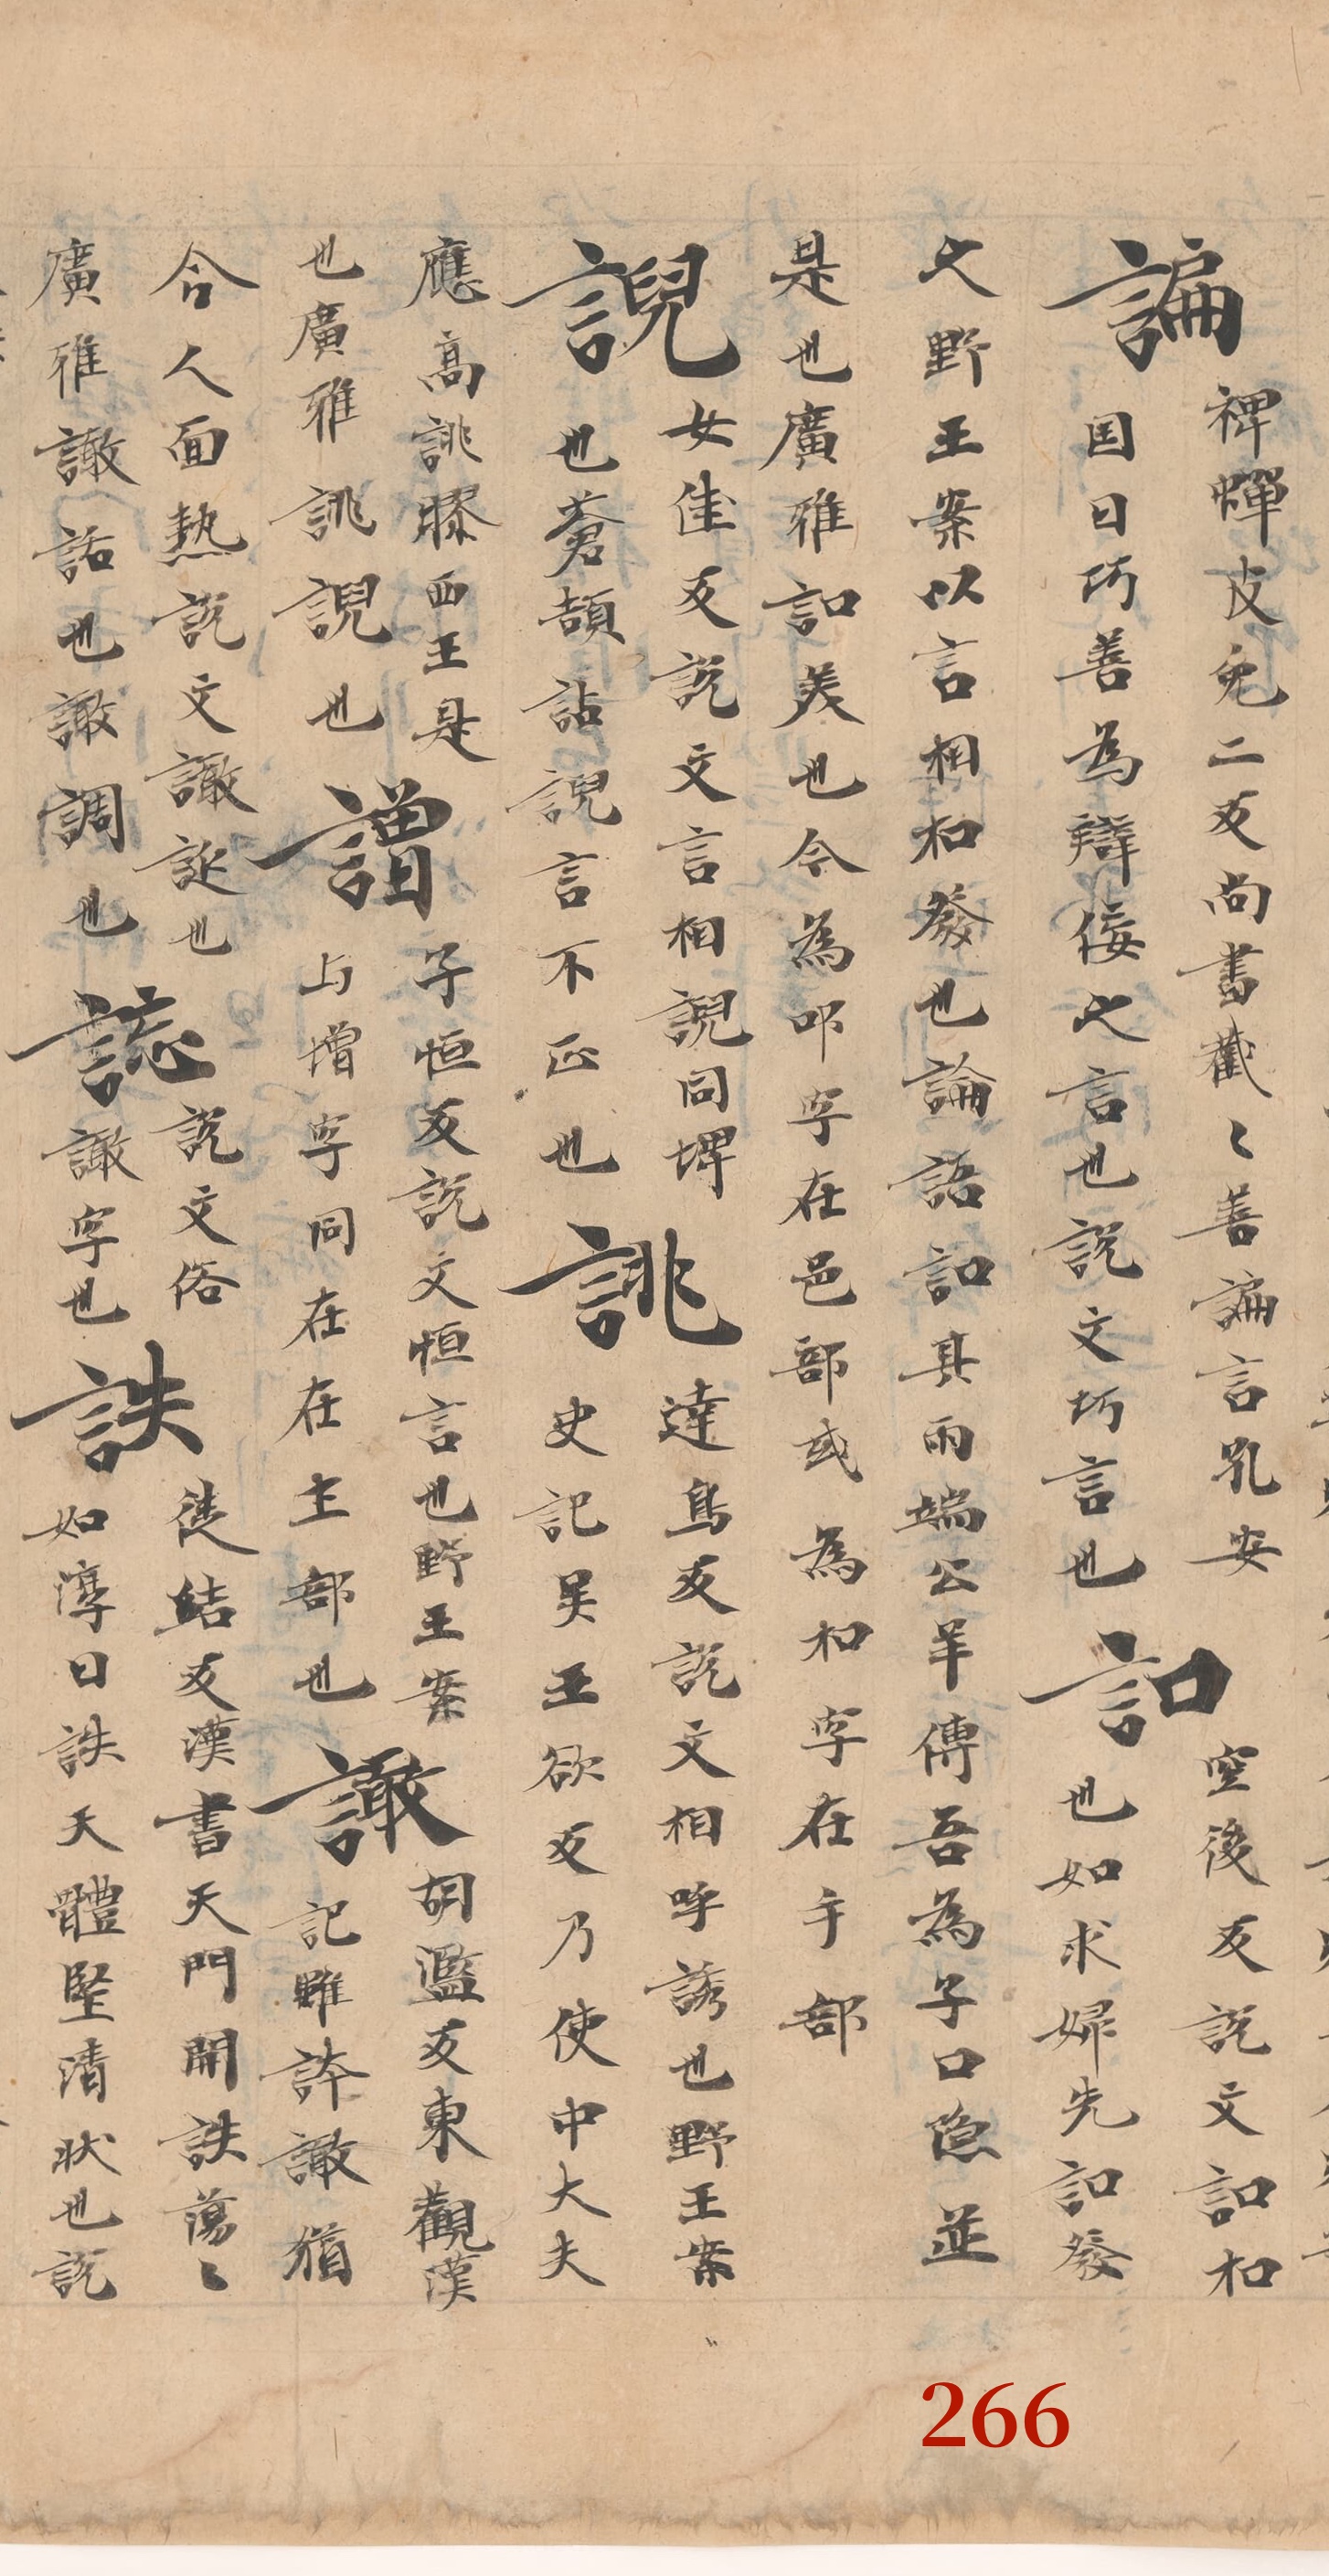 諞裨蟬皮免二反尚書截〻善諞言孔安
国曰巧善為辯佞之言也說文巧言也
䚯空後反說文䚯和
也如求婦先䚯發
之野王案以言相和發也論語䚯其兩端公羊傳吾為子口隱並
是也廣雅䚯美也今為叩字在邑部或為扣字在手部
䛏女佳反說文言相䛏同埤
也蒼頡詀䛏言不正也
誂達鳥反說文相呼誘也野王案
史記吴王欲反乃使中大夫
應高誂膠西王是
也廣雅誂䛏也
譄子恒反說文恒言也野王案
与增字同在在土部也
譀胡濫反東觀漢
記雖誇譀猶
令人面熱說文譀誕也
廣雅譀話也譀調也
誌說文俗
譀字也
詄徒結反漢書天門開詄蕩〻
如淳曰詄天體堅清狀也說
266